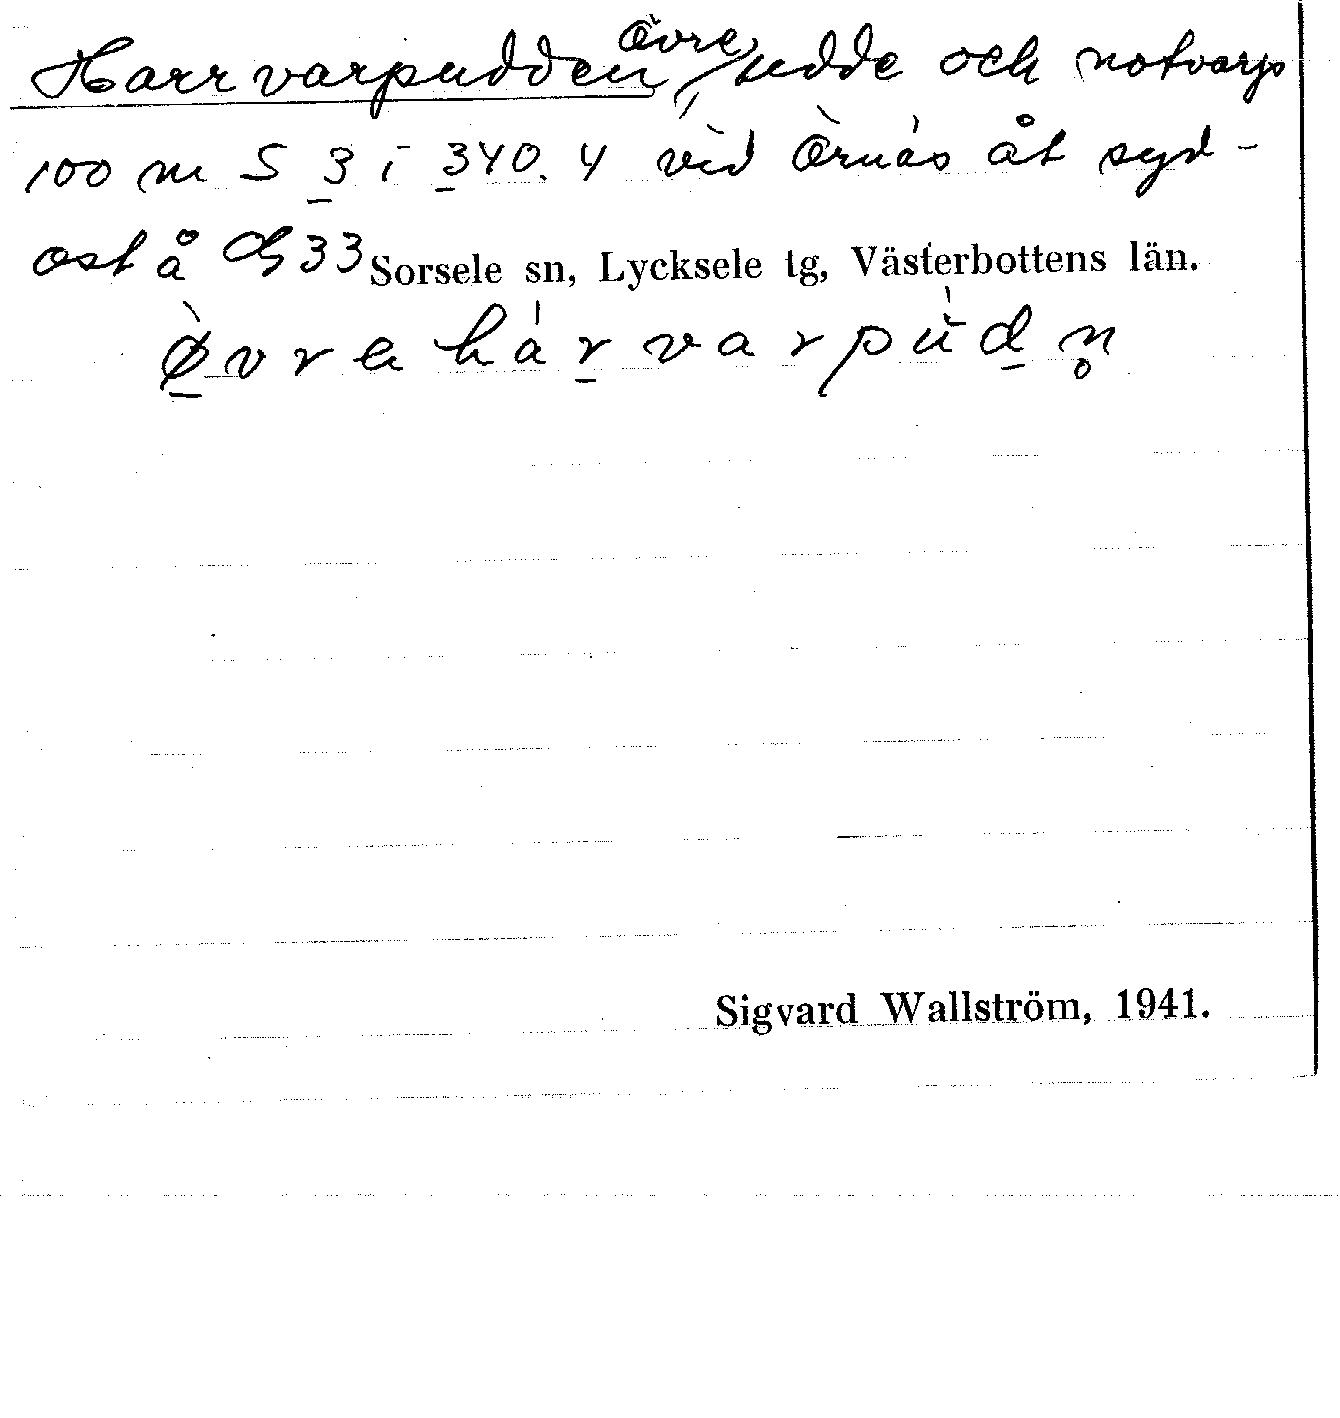 Harrvarpudden, Övre, udde och notvarp
100 m S 3 i 340.4 vid Örnäs åt syd-
ost å 33 Sorsele sn, Lycksele tg, Västerbottens län.
ø̀vre hárvarpùdn̥
Sigvard Wallström, 1941.